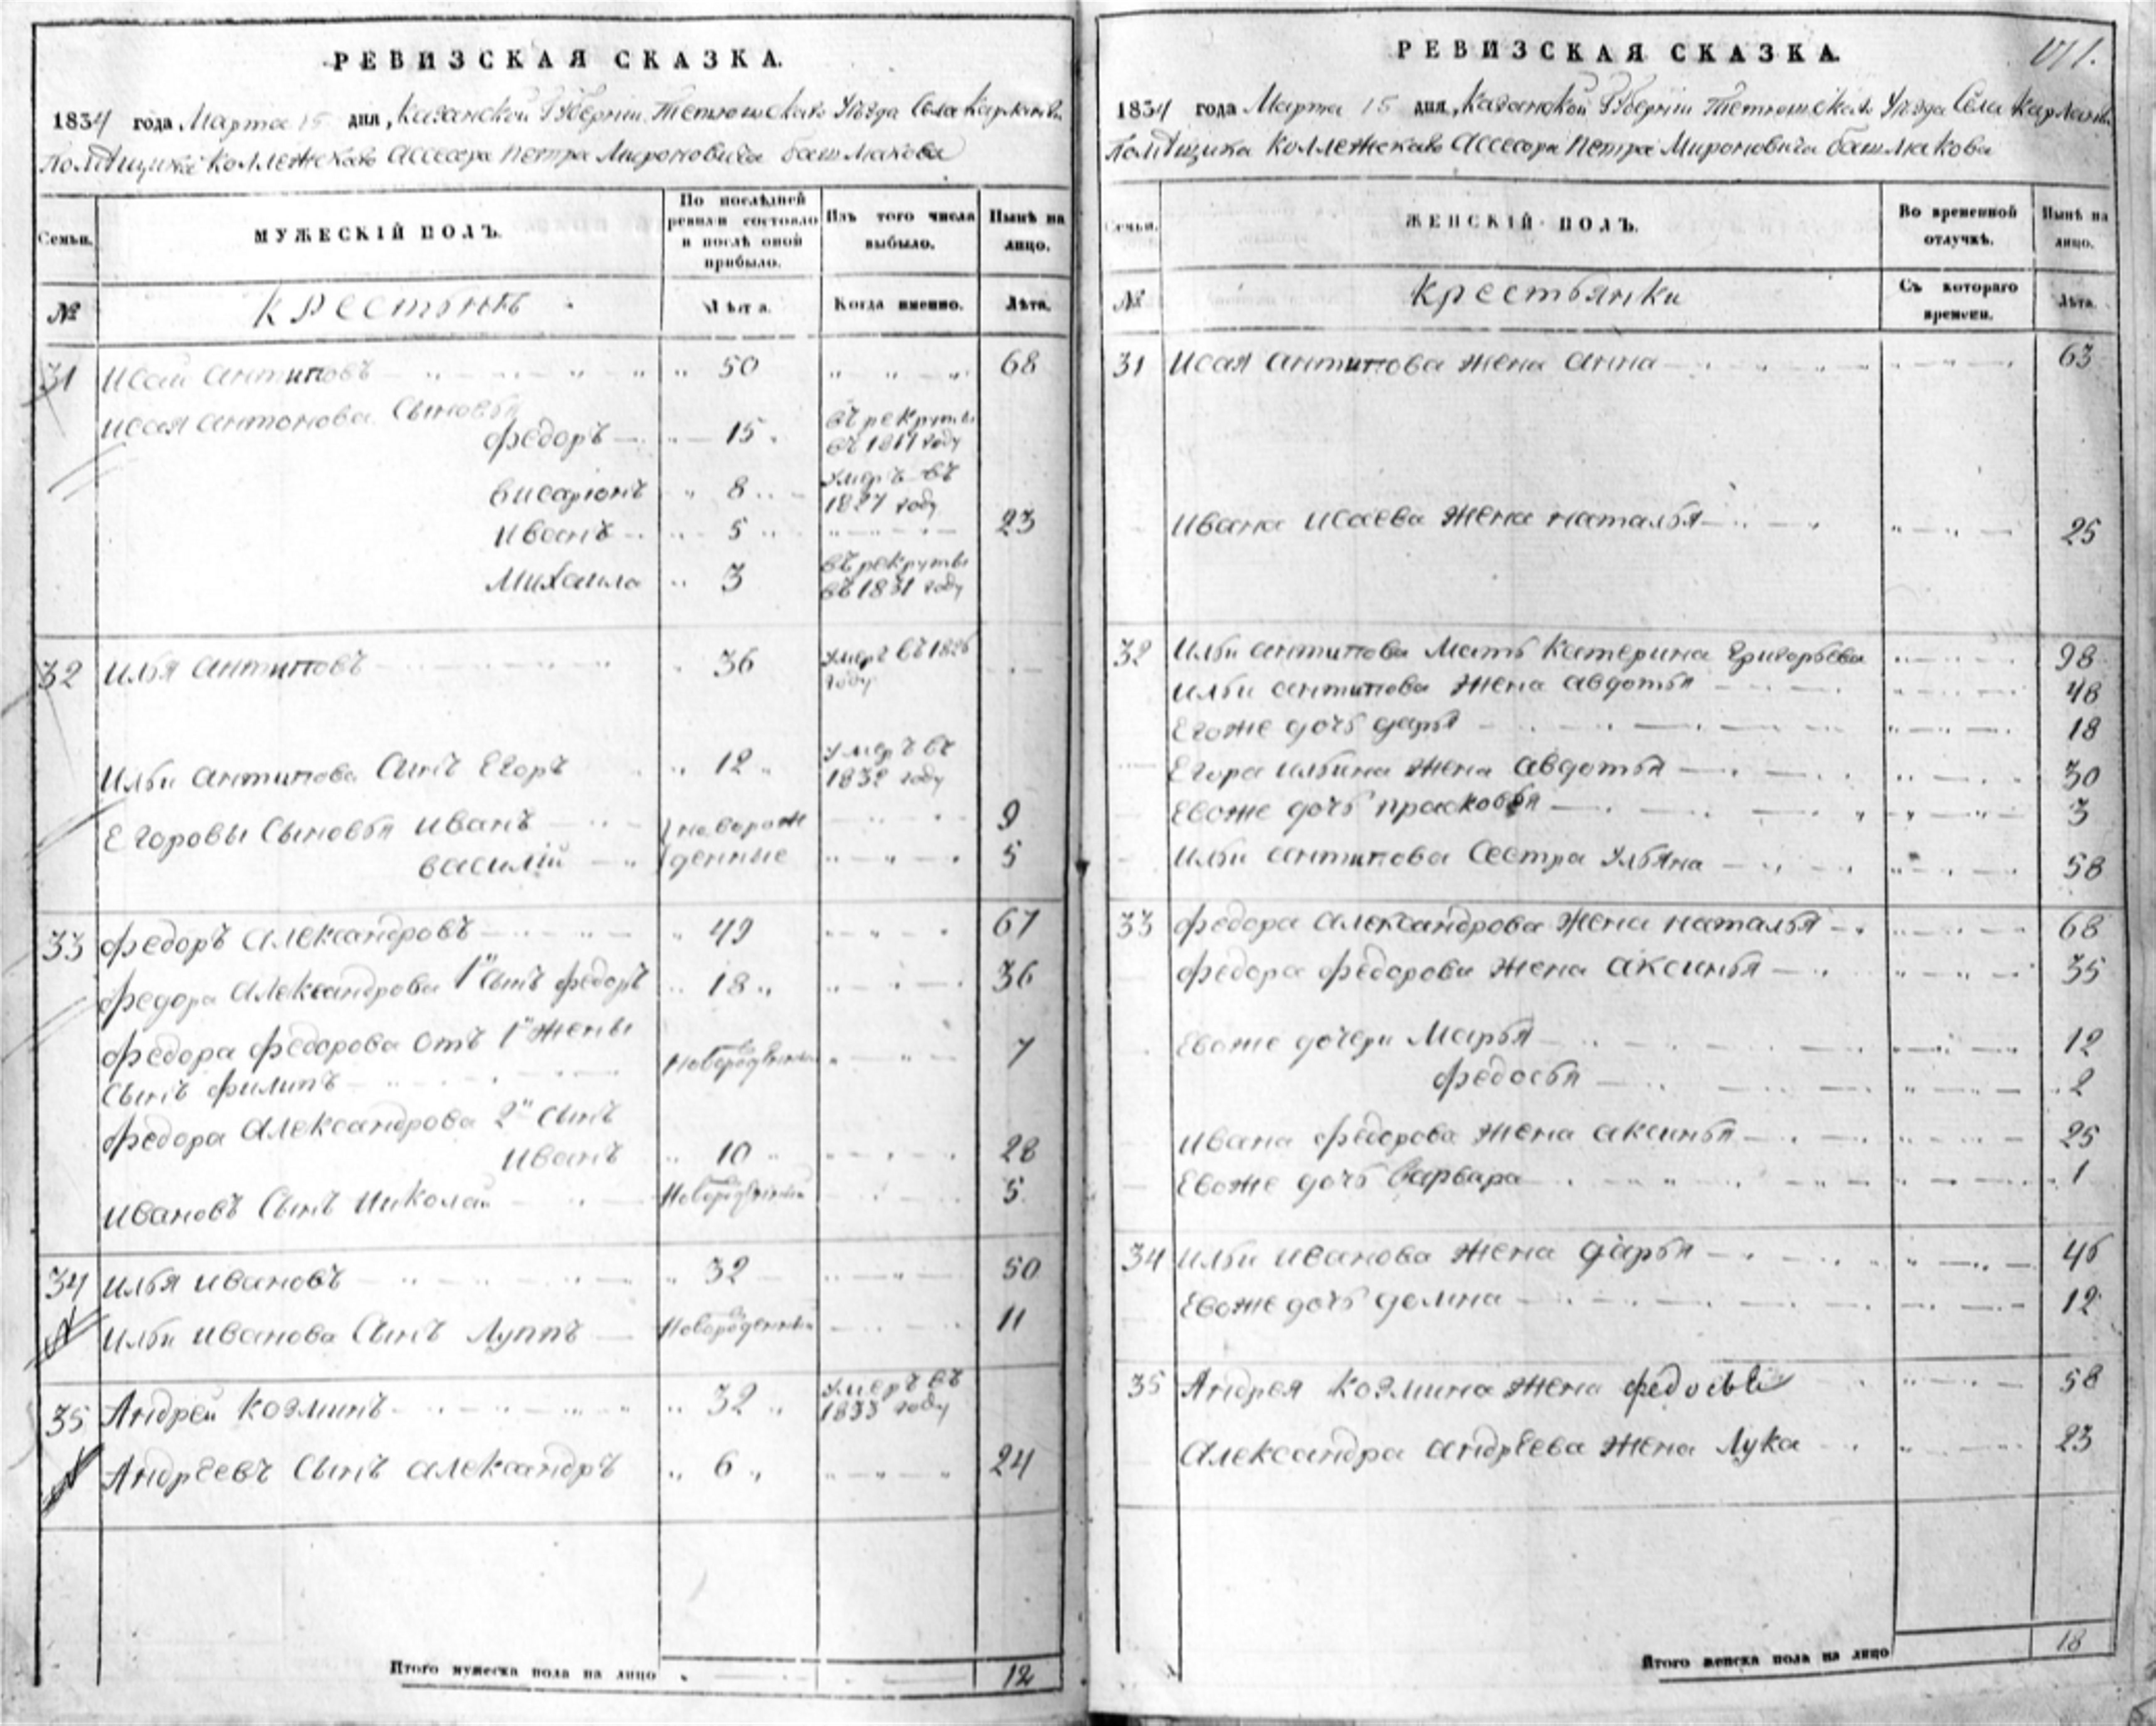 РЕВИЗСКАЯ СКАЗКА.
1834 года Марта 15 дня, Казанской Губернiи Тетюшскаго Уѣзда Села
Помѣщика Коллежскаго Ассесора Петра Мироновича Башмакова
Семьи.
МУЖЕСКIЙ ПОЛЪ.
По послѣдней ревизiи состояло и послѣ оной прибыло.
Изъ того числа выбыло.
Нынѣ на лицо.
№
Крестьянъ
Лѣта.
Когда именно.
Лѣта.
31 Исай Антиповъ 50 68
Исая Антонова Сыновья
Федоръ 15 въ рекруты въ году
Висарiонъ 8 Умеръ въ 1827 году
Иванъ 5 23
Михаила 3 въ рекруты въ 1831 году
32 Илья Антиповъ 36 Умеръ въ 1826 году
Ильи Антипова Сынъ Егоръ 12 Умеръ въ 1832 году
Егоровы Сыновья Иванъ новорож 9
Василiй денные 5
33 Федоръ Александровъ 49 67
Федора Александрова 1й Сынъ Федоръ 18 36
Федора Федорова отъ 1й жены
Сынъ Филипъ Новорожденный 7
Федора Александрова 2й Сынъ
Иванъ 10 28
Ивановъ Сынъ Николай Новорожденный 5
34 Илья Ивановъ 32 50
Ильи Иванова Сынъ Луппъ Новорожденный 11
35 Андрей Козминъ 32 Умеръ въ 1833 году
Андрѣевъ Сынъ Александръ 6 24
Итого мужеска пола на лицо 12
РЕВИЗСКАЯ СКАЗКА.
1834 года Марта 15 дня, Казанской Губернiи Тетюшскаго Уѣзда Села
Помѣщика Коллежскаго Ассесора Петра Мироновича Башмакова
Семьи.
ЖЕНСКIЙ ПОЛЪ.
Во временной отлучкѣ.
Нынѣ на лицо.
№
Крестьянки
Съ котораго времени.
Лѣта.
31 Исая Антипова жена Анна 63
Ивана Исаева жена Наталья 25
32 Ильи Антипова Мать Катерина Григорьева 98
Ильи Антипова жена Авдотья 48
Егоже дочь Дарья 18
Егора Ильина жена Авдотья 30
Евоже дочь Прасковья 3
Ильи Антипова Сестра Ульяна 58
33 Федора Александрова жена Наталья 68
Федора Федорова жена Аксинья 35
Евоже дочери Марья 12
Федосья 2
Ивана Федорова жена Аксинья 25
Евоже дочь Варвара 1
34 Ильи Иванова жена Дарья 46
Евоже дочь Домна 12
35 Андрея Козмина жена Федосья 58
Александра Андрѣева жена Лука 23
Итого женска пола на лицо 18